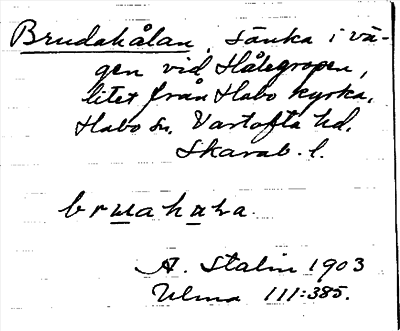 Brudahålan, sänka i vä-
gen vid Hålegropen,
litet från Habo kyrka.
Habo sn. Vartofta hd.
Skarab. l.
bruahaha.
A. Stalin 1903
Ulma 111:385.